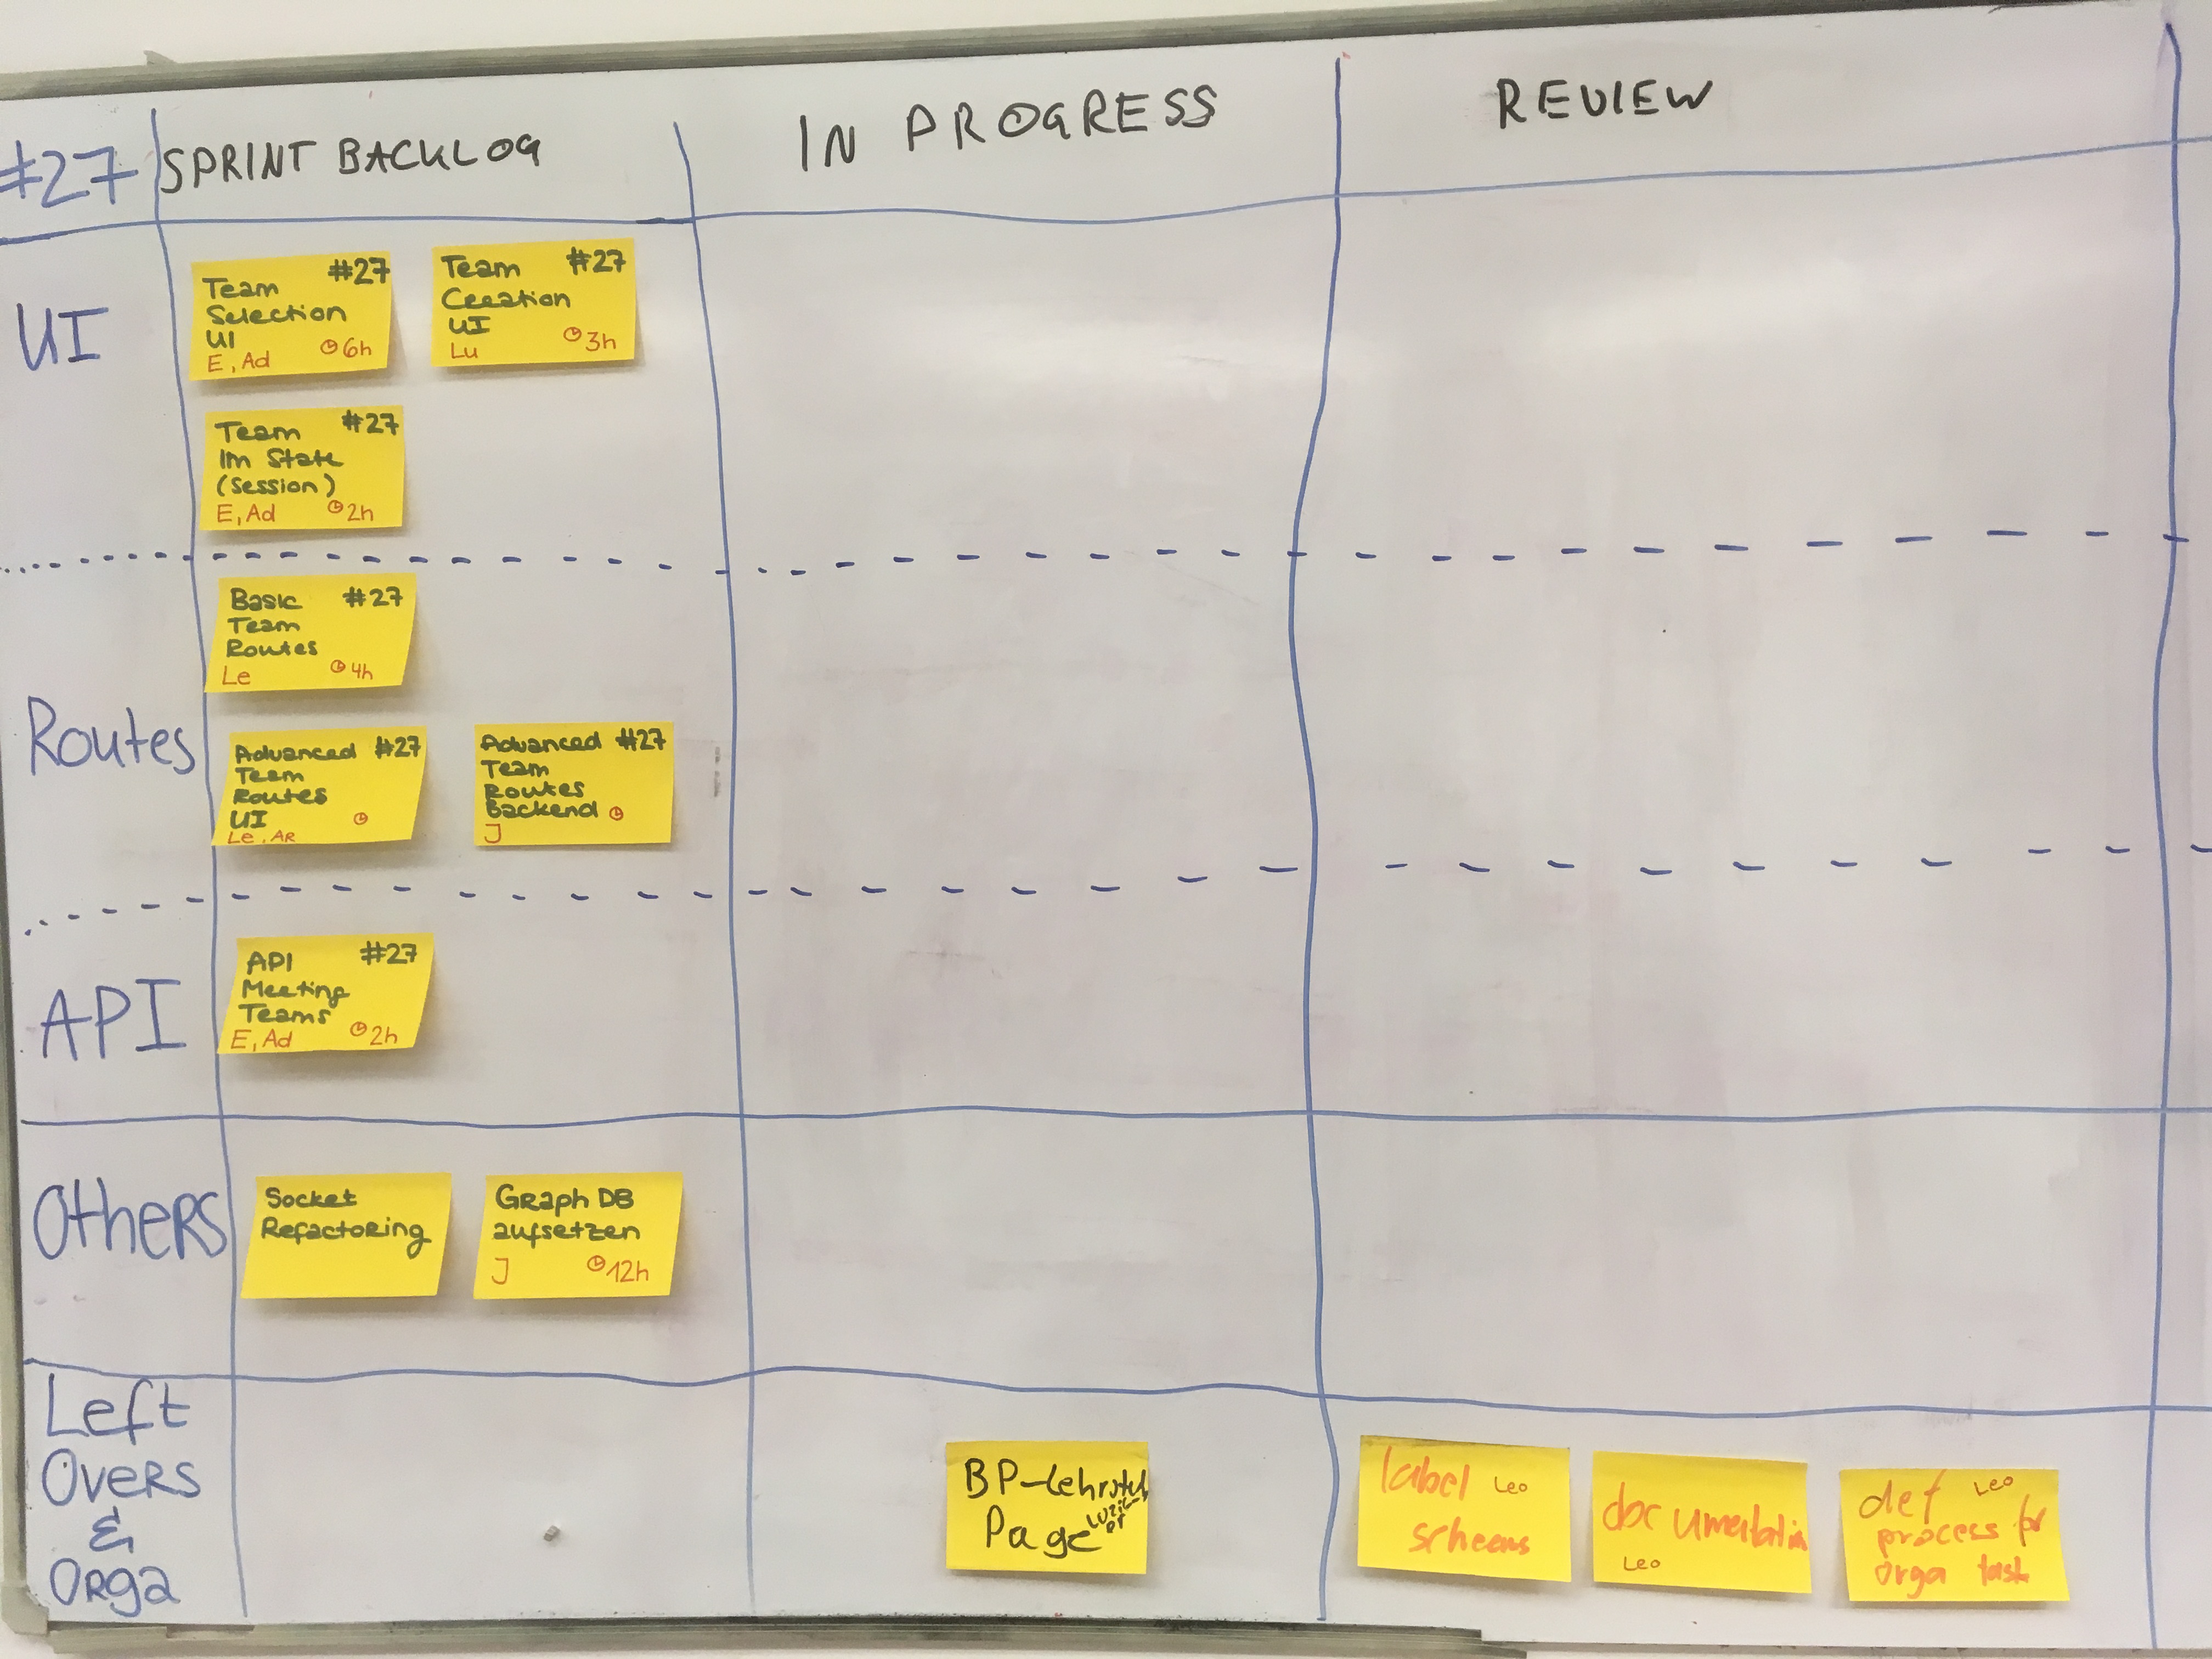 #27 SPRINT BACKLOG IN PROGRESS REVIEW
UI
Team #27
Selection
UI
E, Ad 6h
Team #27
Creation
UI
Lu 3h
Team #27
Im State
(Session)
E, Ad 2h
Routes
Basic #27
Team
Routes
Le 4h
Advanced #27
Team
Routes
UI
Le, AR
Advanced #27
Team
Routes
Backend
J
API
API #27
Meeting
Teams
E, Ad 2h
Others
Socket
Refactoring
Graph DB
aufsetzen
J 12h
Left
Overs
&
Orga
BP-Lehrstuhl
Page
label Leo
documentation
Leo
def Leo
process for
orga task